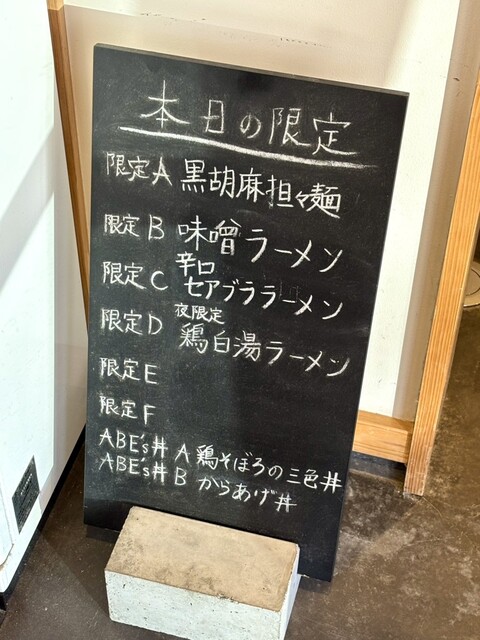 本日の限定
限定A 黒胡麻担々麺
限定B 味噌ラーメン
限定C 辛口セアブララーメン
限定D 夜限定 鶏白湯ラーメン
限定E
限定F
ABE's丼 A 鶏そぼろの三色丼
ABE's丼 B からあげ丼